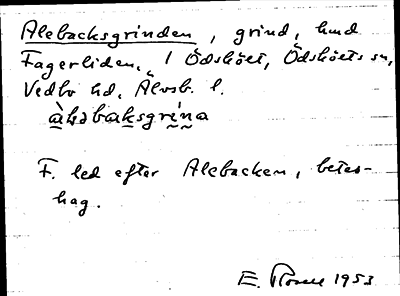 Alebacksgrinden, grind, hmd
Fagerliden, 1 Ödskölt, Ödskölts sn,
Vedbo hd, Älvsb. l.
àləbaksgrína
F. led efter Alebacken, betes-
hag.
E. Rosell 1953